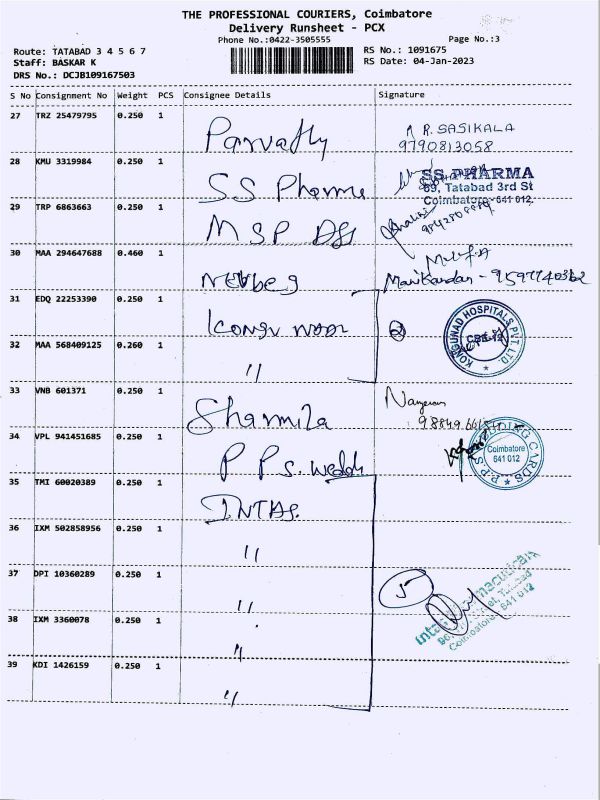 THE PROFESSIONAL COURIERS, Coimbatore
Delivery Runsheet - PCX
Phone No.:0422-3505555
Page No.:3
Route: TATABAD 3 4 5 6 7
RS No.: 1091675
Staff: BASKAR K
RS Date: 04-Jan-2023
DRS No.: DCJB109167503
S No Consignment No Weight PCS Consignee Details Signature
27 TRZ 25479795 0.250 1 R. SASIKALA
9790813058
28 KMU 3319984 0.250 1 SS Pharma SS PHARMA
69, Tatabad 3rd St
Coimbatore-641 012.
29 TRP 6863663 0.250 1 MSP
30 MAA 294647688 0.460 1 Manikandan - 9597740362
31 EDQ 22253390 0.250 1 KONGUNAD HOSPITALS PVT. LTD. CBE-12
32 MAA 568409125 0.260 1 "
33 VNB 601371 0.250 1 Sharmila
34 VPL 941451685 0.250 1 P P S. P.P.S. WEDDING CARDS Coimbatore 641 012
35 TMI 60020389 0.250 1 INTAS.
36 IXM 502858956 0.250 1 "
37 DPI 10360289 0.250 1 " 5
38 IXM 3360078 0.250 1 "
Coimbatore 641 012
39 KDI 1426159 0.250 1 "